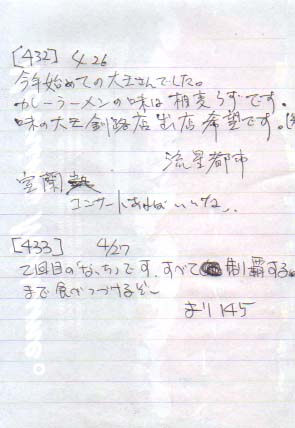 [432] 4.26
今年始めての大王さんでした。
カレーラーメンの味は相変らずです。
味の大王釧路店出店希望です。
流星都市
室蘭
コンサートあればいいな、
[433] 4/27
2回目の"なっち"です、すべて制覇する。
まで食べつづけるぞ〜
まり145